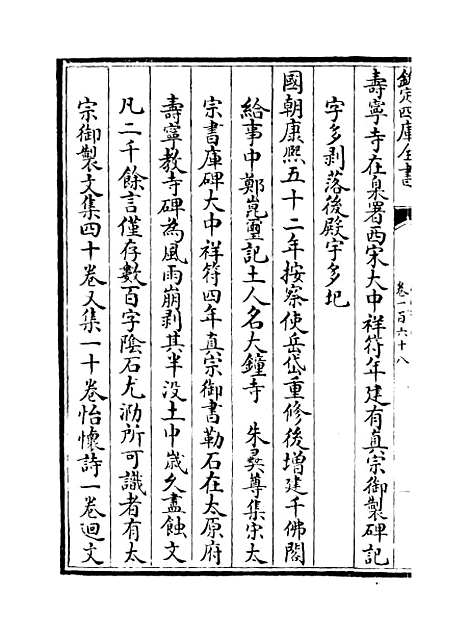 欽定四庫全書
卷一百六十八
壽寧寺在臬署西宋大中祥符年建有真宗御製碑記
字多剥落後殿宇多圯
國朝康熙五十二年按察使岳岱重修後增建千佛閣
給事中鄭崑璽記土人名大鐘寺 朱彛尊集宋太
宗書庫碑大中祥符四年真宗御書勒石在太原府
壽寧教寺碑為風雨崩剥其半没土中歳久盡蝕文
凡二千餘言僅存數百字陰石尤泐所可識者有太
宗御製文集四十卷又集一十卷怡懷詩一卷迴文